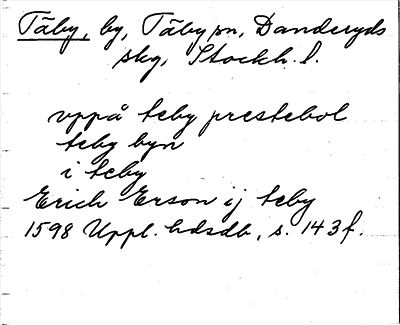 Täby, by, Täby sn, Danderyds
skg, Stockh. l.
vppå teby prestebol
teby byn
i teby
Erich Erson ij teby
1598 Uppl. hdsdb, s. 143 f.